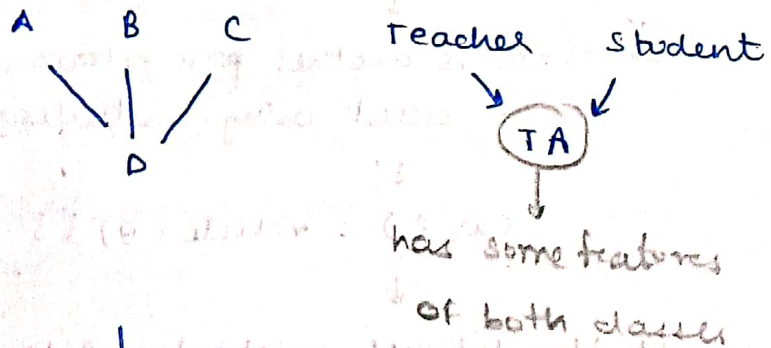 A B C
D
Teacher Student
TA
has some features
of both classes